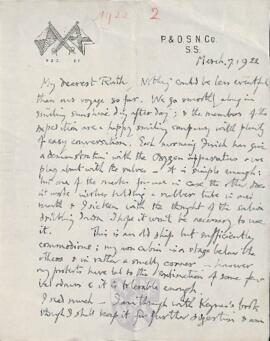 1922 2
P & O. S. N. Co.
S.S.
March, 7, 1922
My dearest Ruth, Nothing could be less eventful
than our voyage so far. We go smoothly along in
smiling sunshine day after day; & the members of the
expedition are a happy smiling company with plenty
of easy conversation. Each morning Finch has given
a demonstration with the oxygen apparatus & we
play about with the valves – it is simple enough:
but one of the masks for use in case the other
is made
mouth & I sicken with the thought of the saliva
dribbling down. I hope it won't be necessary to use
it. This is an old ship but sufficiently
commodious; my own cabin is a stage below the
others & in rather a smelly corner – however
my protests have led to the extinction of some
& it is tolerable enough.
I read much – I am through with Keynes's book
though I shall keep it for further digestion & am